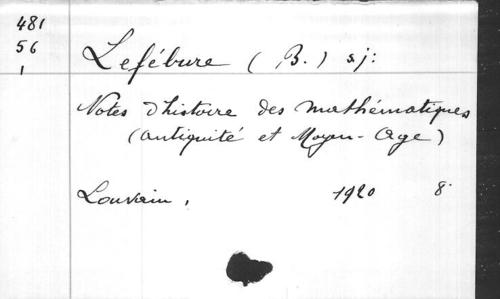 481
56
1
Lefébure (B.) sj:
Notes d'histoire des mathématiques
(antiquité et Moyen-Age)
Louvain, 1920 8°